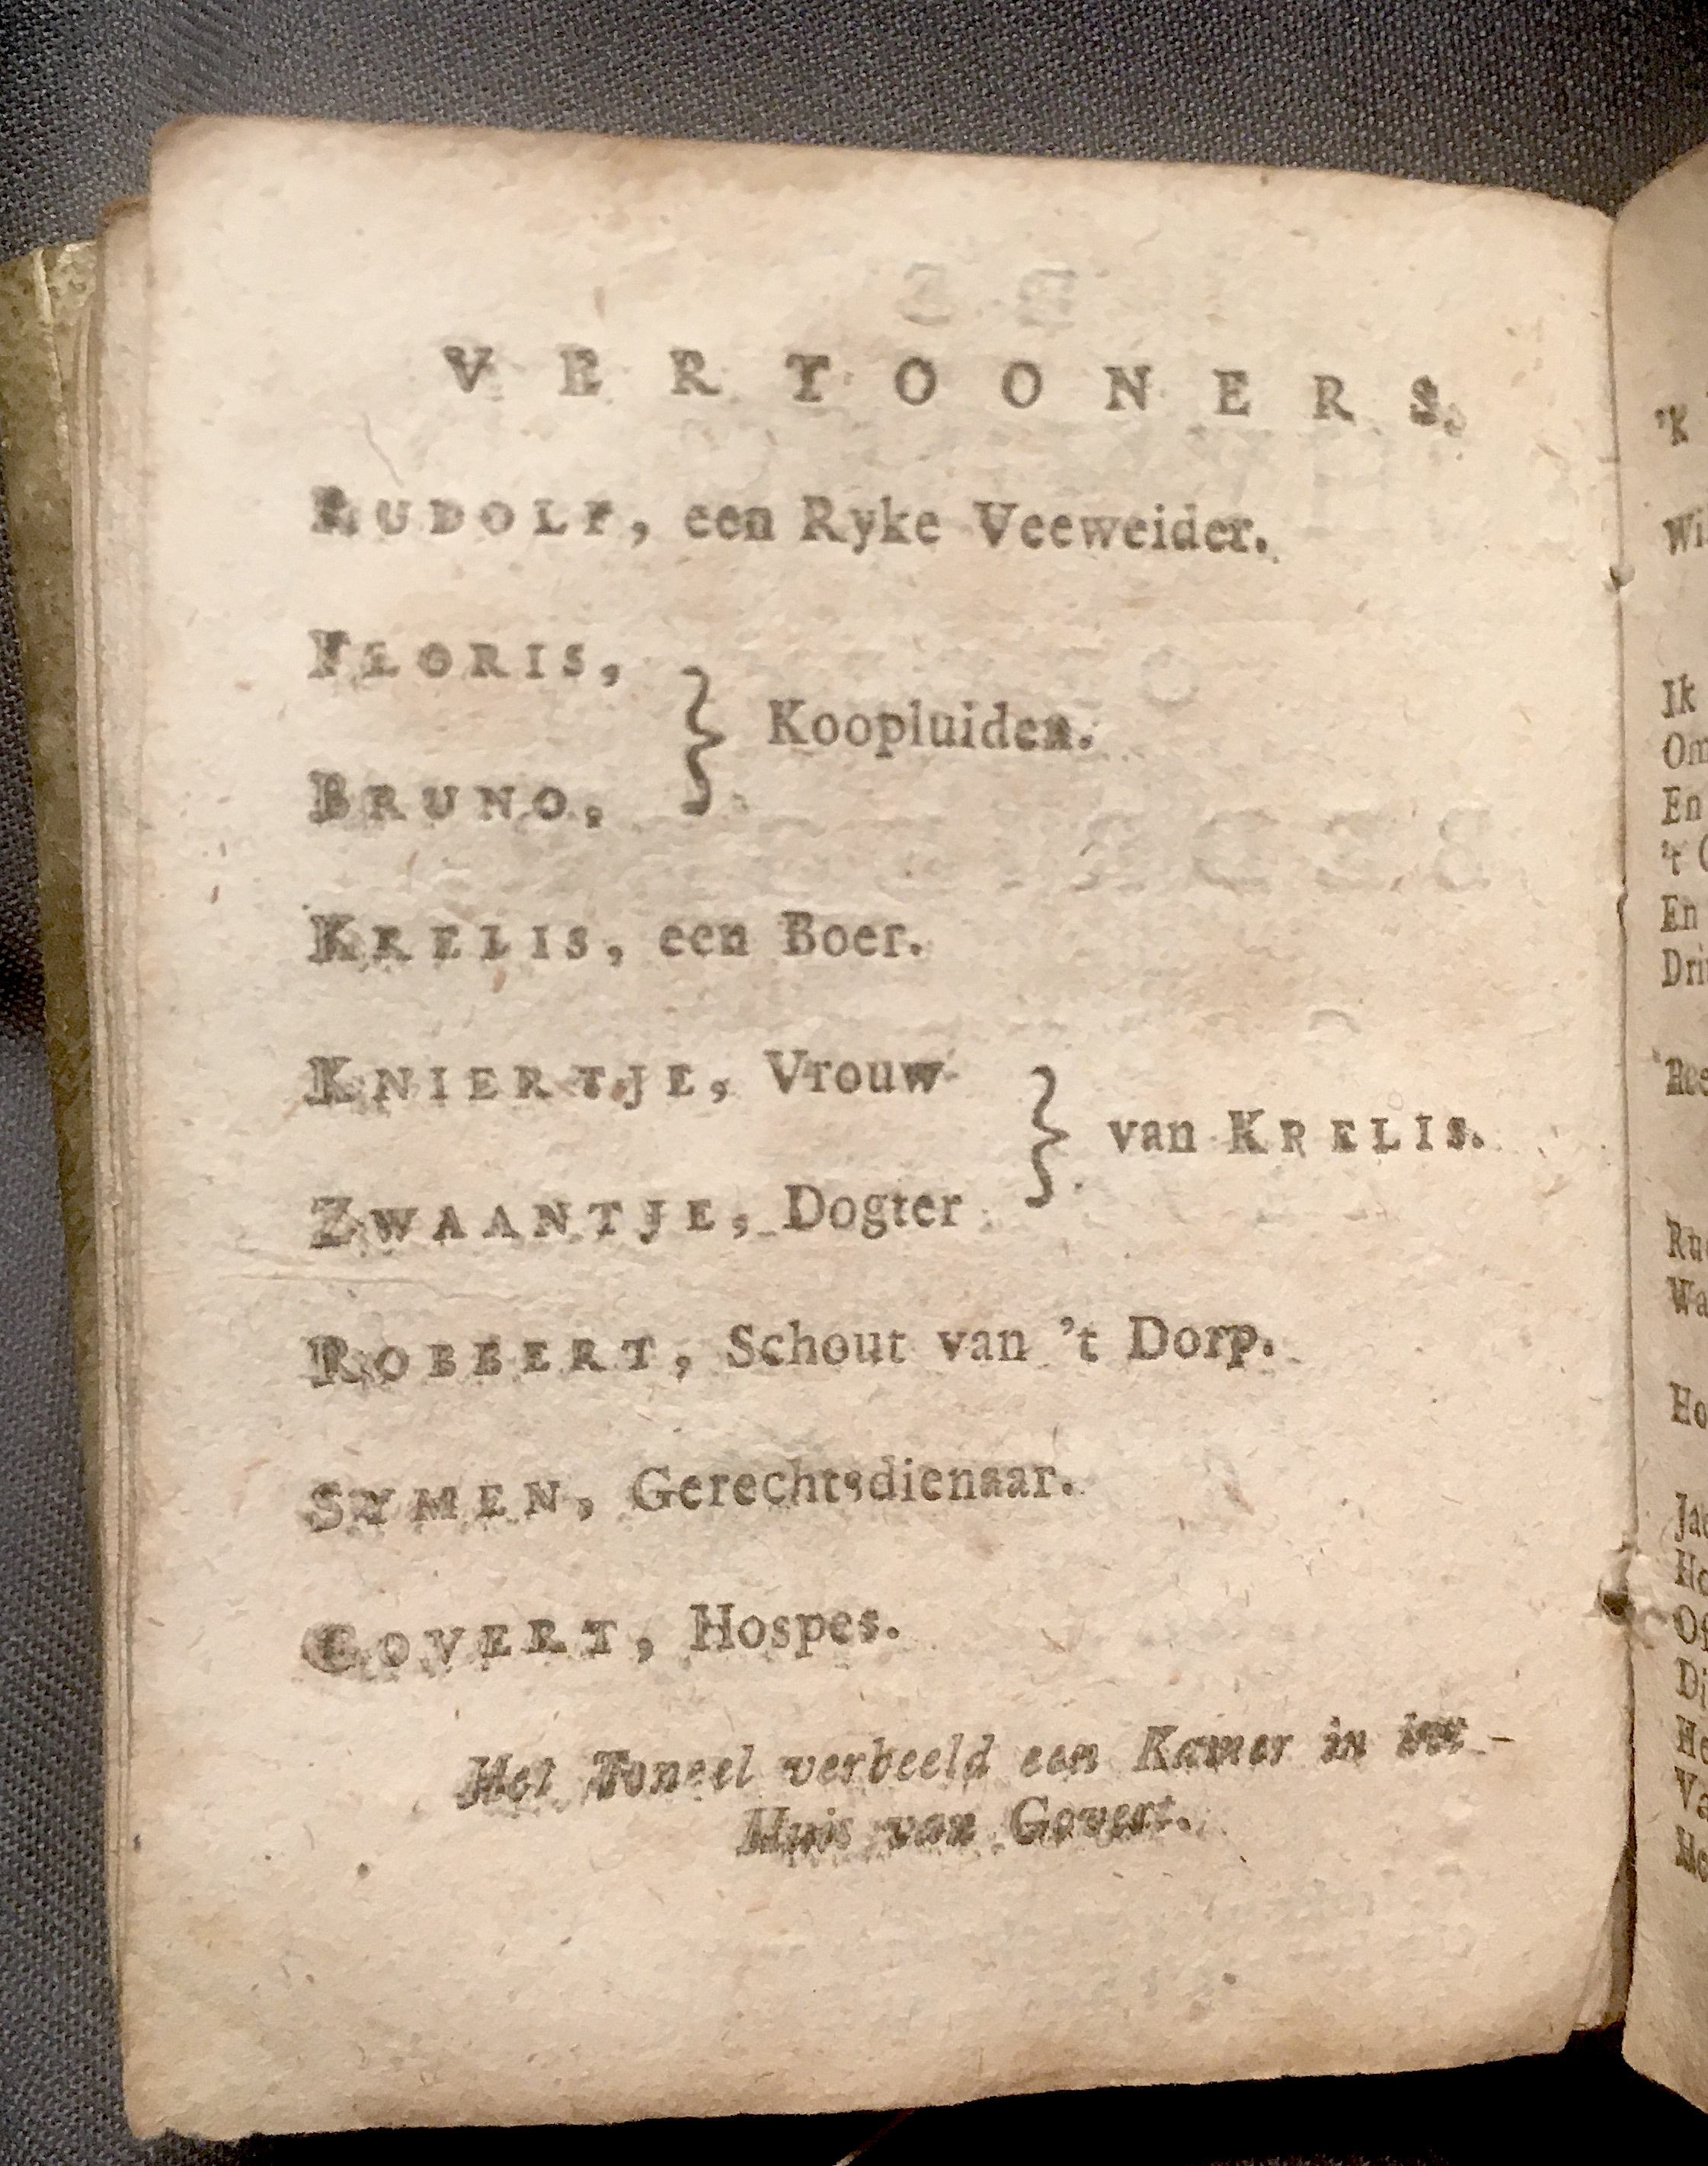 VERTOONERS.
RUDOLF, een Ryke Veeweider.
FLORIS,
} Koopluiden.
BRUNO,
KRELIS, een Boer.
KNIERTJE, Vrouw
} van KRELIS.
ZWAANTJE, Dogter
ROBBERT, Schout van 't Dorp.
SYMEN, Gerechtsdienaar.
GOVERT, Hospes.
Het Toneel verbeeld een Kamer in het
Huis van Govert.
'K
Ik
En
't
En